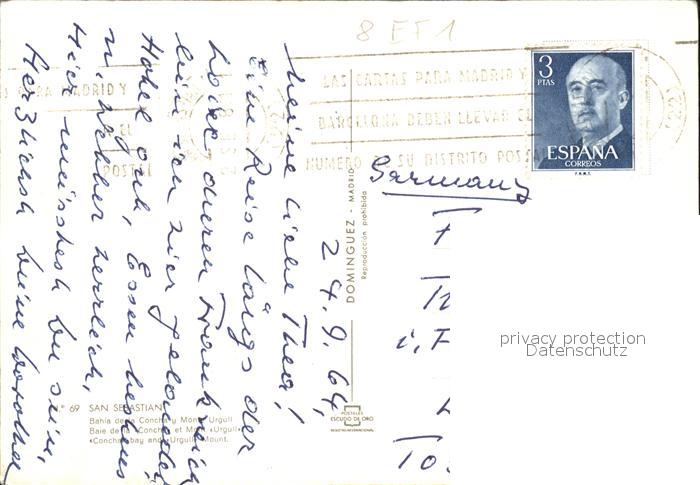 8 EF1
LAS CARTAS PARA MADRID Y
BARCELONA DEBEN LLEVAR EL
NUMERO DE SU DISTRITO POSTAL
PARA MADRID Y
EL
POSTAL
3
PTAS
ESPAÑA
CORREOS
F.N.M.T.
Germany
24.9.64,
Meine liebe Thea!
Eine Reise längs der
Loire durch Frankreich
hier gelandet
Hotel gut, Essen
Wetter herrlich,
Herzlichst Deine Dorothea
DOMINGUEZ - MADRID
Reproducción prohibida
N.º 69 SAN SEBASTIAN
Bahía de la Concha y Monte Urgull
Baie de la «Concha» et Mont «Urgull»
«Concha» bay and «Urgull» Mount.
POSTALES
ESCUDO DE ORO
i. F
To
privacy protection
Datenschutz